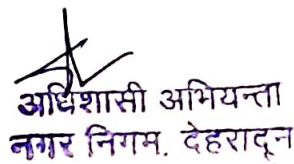 अधिशासी अभियन्ता
नगर निगम, देहरादून